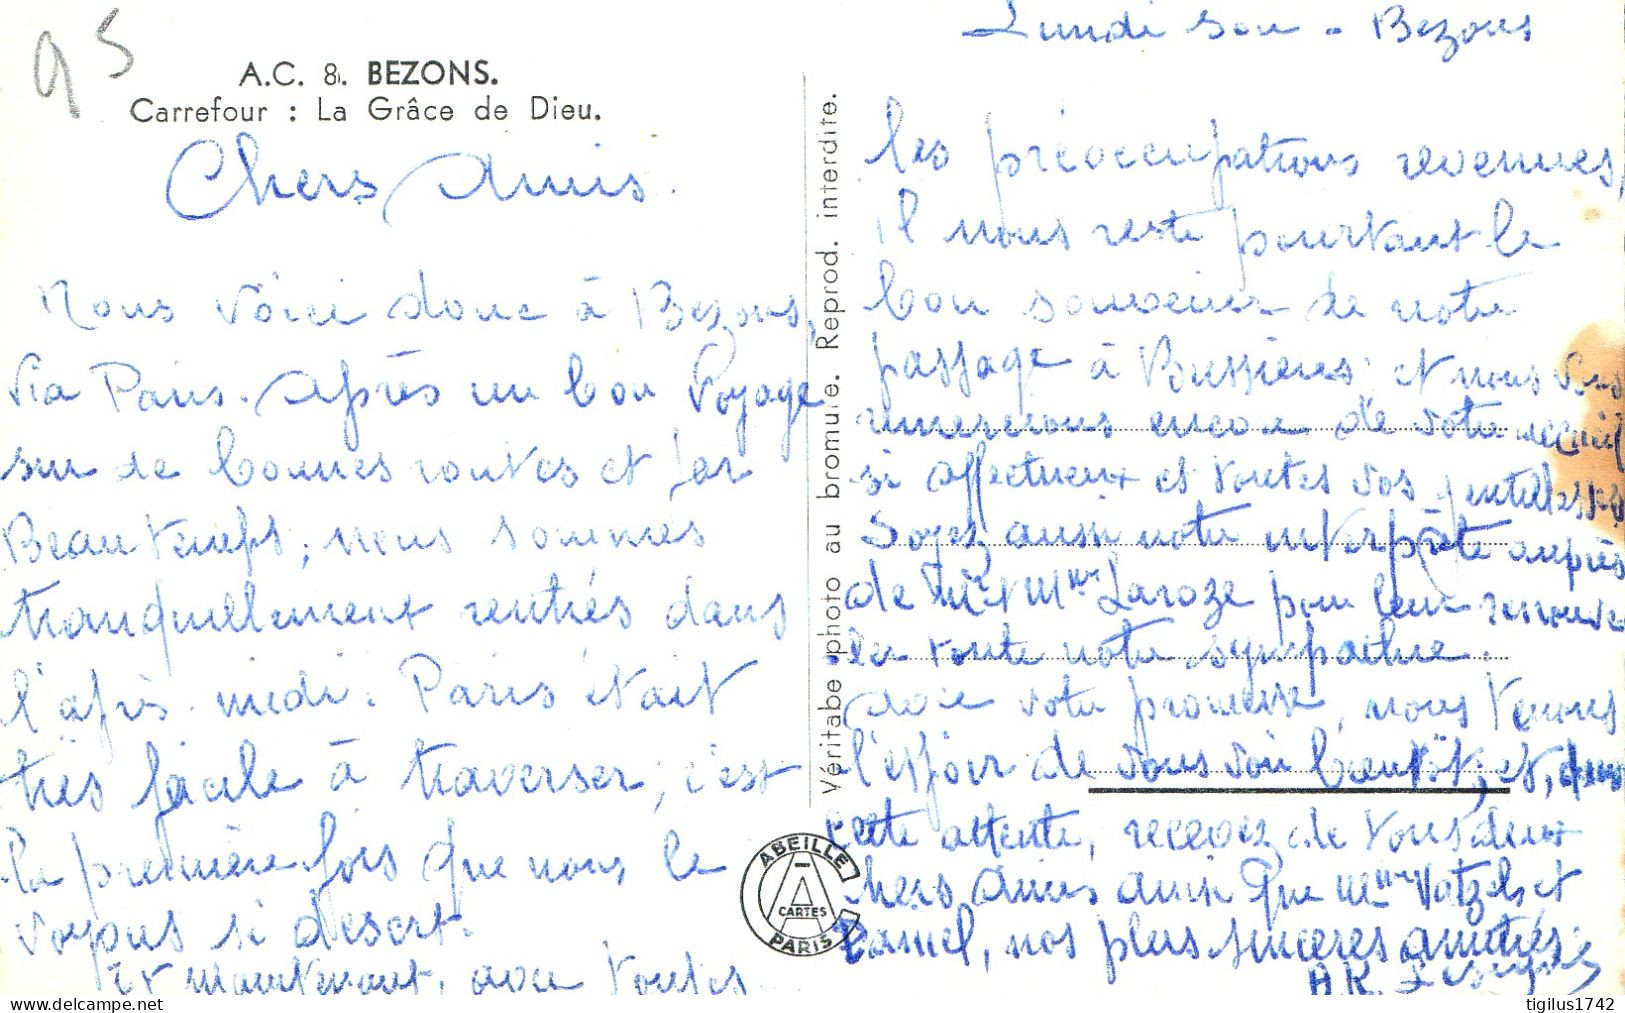 95
A.C. 8. BEZONS.
Carrefour : La Grâce de Dieu.
Chers Amis.
Nous voici donc à Bezons,
via Paris. Après un bon voyage
sur de bonnes routes et par
Beau temps, nous sommes
tranquillement rentrés dans
l'après-midi. Paris était
très facile à traverser, c'est
la première fois que nous le
voyons si désert.
Et maintenant, avec toutes
Véritabe photo au bromure. Reprod. interdite.
ABEILLE
CARTES
PARIS
Lundi soir - Bezons
les préoccupations revenues,
il nous reste pourtant le
bon souvenir de notre
passage à Bussières et nous vous
remercions encore de votre accueil
si affectueux et toutes vos gentillesses
Soyez aussi notre interprète auprès
de Mr et Mme Laroze pour leur renouve
ler toute notre sympathie.
Avec votre promesse, nous tenons
l'espoir de vous voir bientôt, et, dans
cette attente, recevez de tous deux
chers Amis ainsi que Mme et
Daniel, nos plus sincères amitiés.
tigilus1742